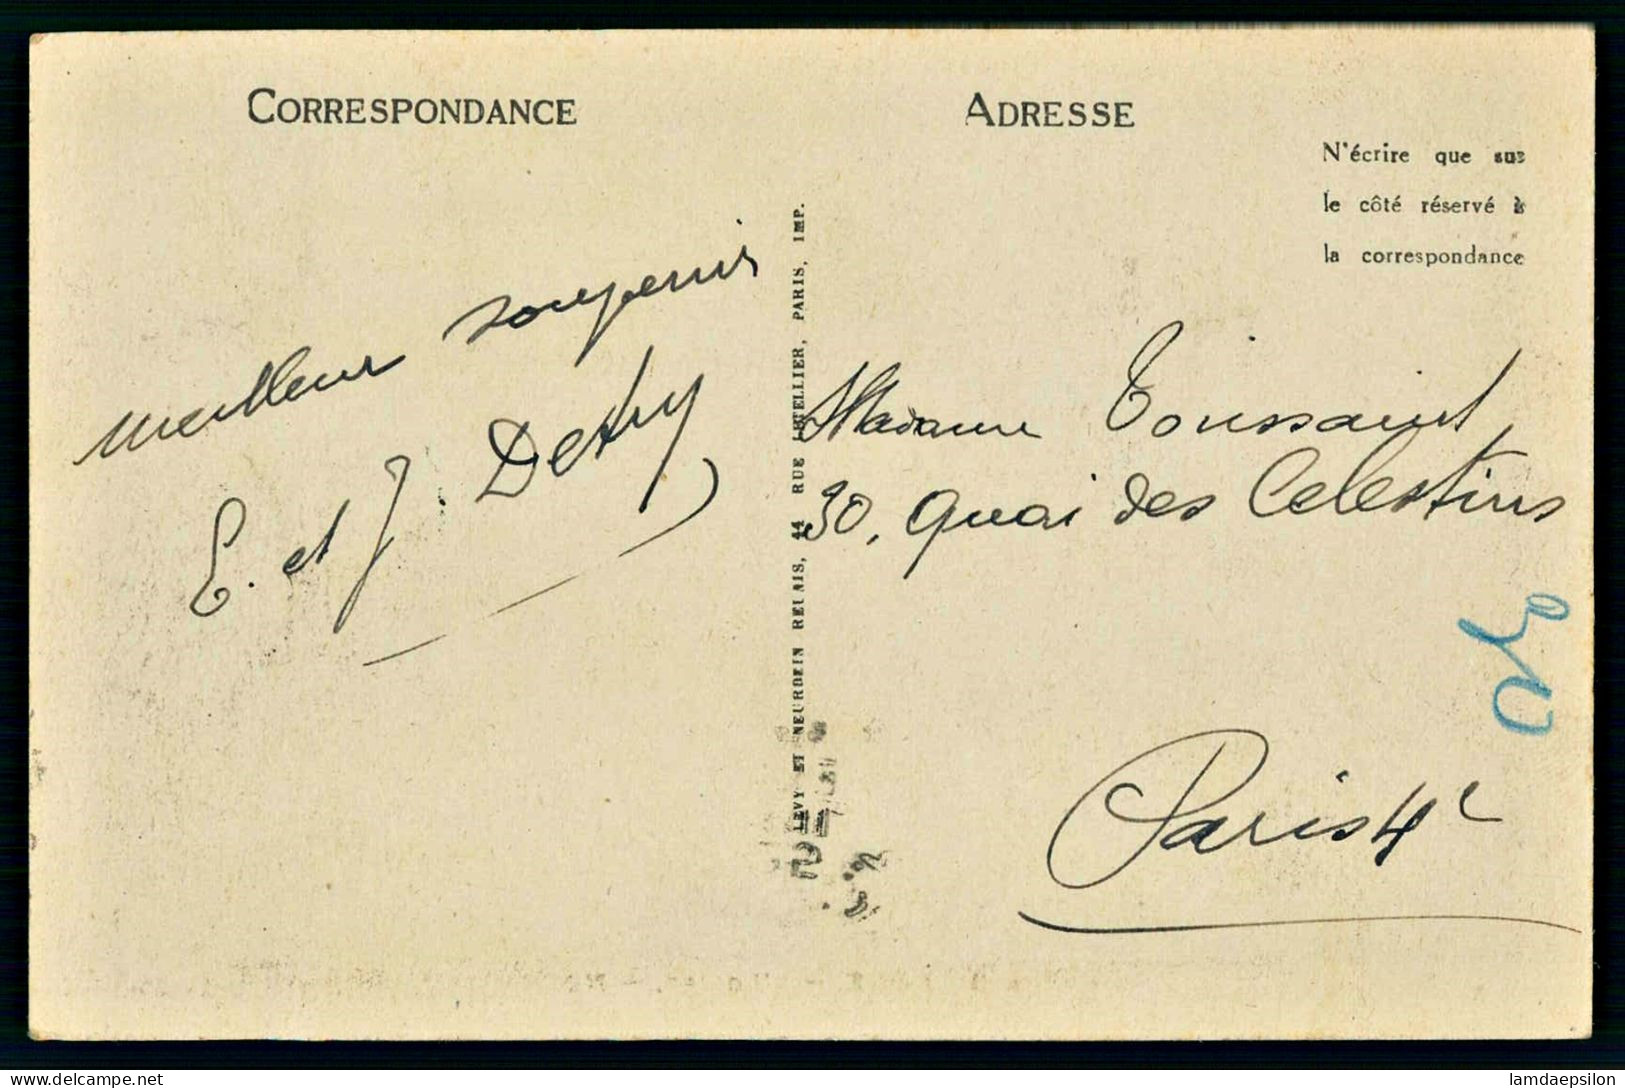 CORRESPONDANCE
ADRESSE
N'écrire que sur
le côté réservé à
la correspondance
meilleur souvenir
E. et J. Detry
LEVY ET NEURDEIN REUNIS, 44 RUE LETELLIER, PARIS, IMP.
Madame Toussaint
30, Quai des Celestins
Paris 4e
lamdaepsilon